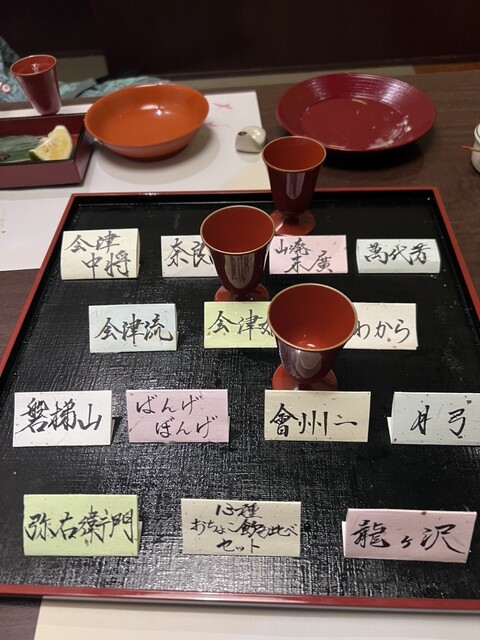 会津
中将
奈良
山廃
末廣
萬代芳
会津流
会津
わから
磐梯山
ばんげ
ばんげ
會州一
月弓
弥右衛門
13種
おちょこ飲み比べ
セット
龍ヶ沢